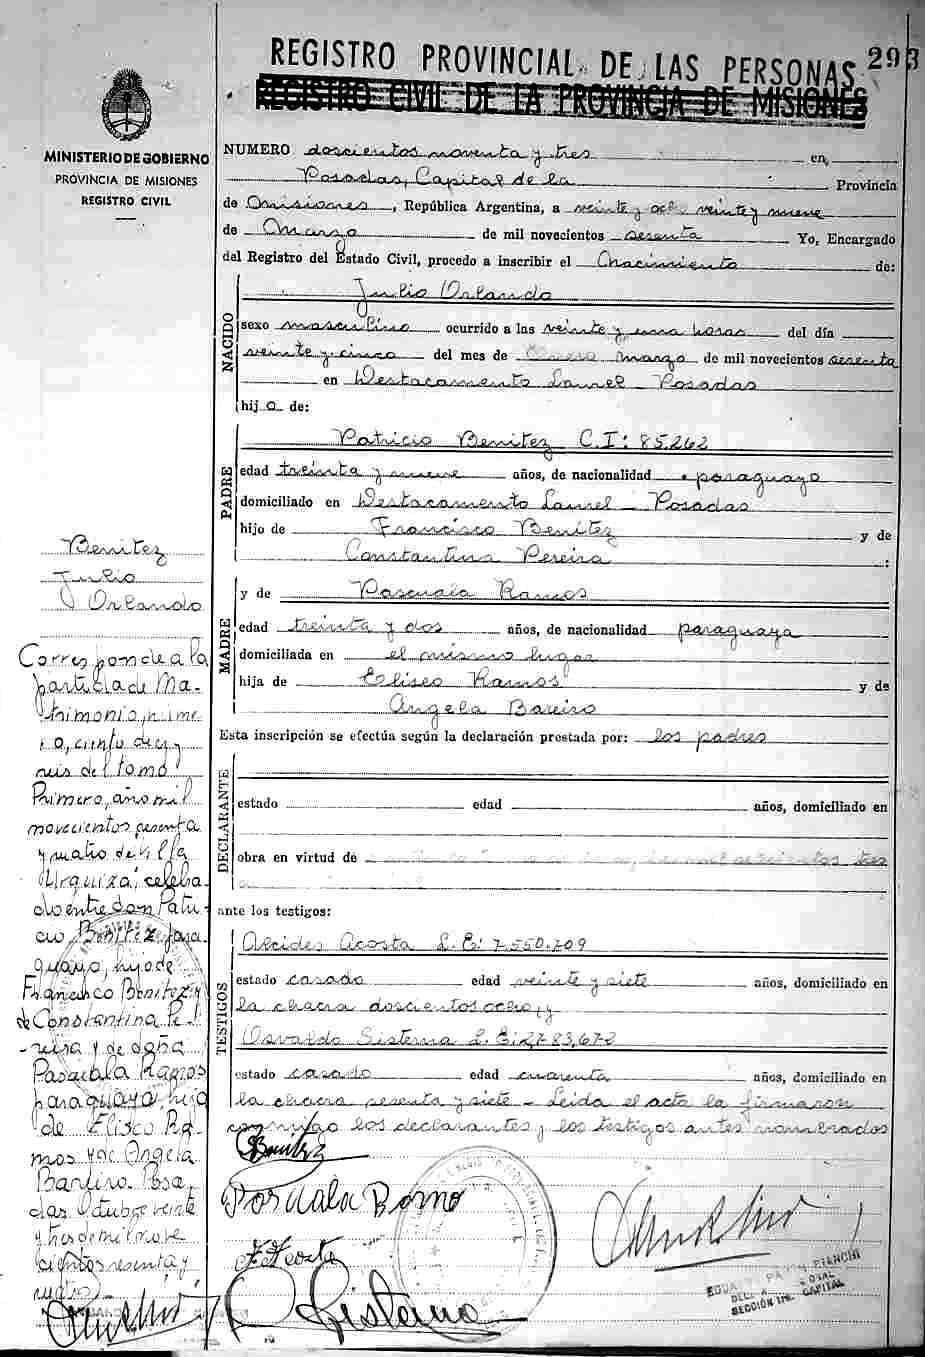 293
REGISTRO PROVINCIAL DE LAS PERSONAS
REGISTRO CIVIL DE LA PROVINCIA DE MISIONES
MINISTERIO DE GOBIERNO
PROVINCIA DE MISIONES
REGISTRO CIVIL
NUMERO doscientos noventa y tres en
Posadas, Capital de la Provincia
de Misiones, República Argentina, a veinte y ocho veinte y nueve
de Marzo de mil novecientos sesenta Yo, Encargado
del Registro del Estado Civil, procedo a inscribir el Nacimiento de:
NACIDO
Julio Orlando
sexo masculino ocurrido a las veinte y una horas del día
veinte y cinco del mes de Enero marzo de mil novecientos sesenta
en Destacamento Laurel - Posadas
hijo de:
PADRE
Patricio Benitez C.I: 85.262
edad treinta y nueve años, de nacionalidad paraguayo
domiciliado en Destacamento Laurel - Posadas
hijo de Francisco Benítez y de
Constantina Pereira :
MADRE
y de Pascuala Ramos
edad treinta y dos años, de nacionalidad paraguaya
domiciliada en el mismo lugar
hija de Eliseo Ramos y de
Angela Bareiro
Esta inscripción se efectúa según la declaración prestada por: los padres
DECLARANTE
estado edad años, domiciliado en
obra en virtud de
ante los testigos:
TESTIGOS
Alcides Acosta L.E: 7.550.709
estado casado edad veinte y siete años, domiciliado en
la chacra doscientos ocho, y
Osvaldo Sisterna L.E: 2783,672
estado casado edad cuarenta años, domiciliado en
la chacra sesenta y siete - Leida el acta la firmaron
conmigo los declarantes y los testigos antes nombrados
Benitez
Pascuala Ramo
A Acosta
O Sisterna
SECCIÓN 1ra. CAPITAL
Benitez
Julio
Orlando
Corresponde a la
partida de Ma-
trimonio, núme
ro, ciento diez y
seis del tomo
Primero, año mil
novecientos sesenta
y cuatro de Villa
Urquiza, celebra-
do entre don Patri-
cio Benitez para
guayo, hijo de
Francisco Benitez y
de Constantina Pe-
reira y de doña
Pascuala Ramos
paraguaya, hija
de Eliseo Ra-
mos y de Angela
Bareiro. Posa-
das Octubre veinte
y tres de mil nove
cientos sesenta y
cuatro